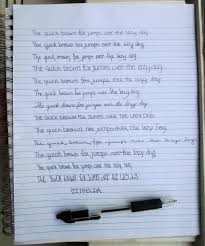 The quick brown fox jumps over the lazy dog
The quick brown fox jumps over the lazy dog.
The quick brown fox jumps over the lazy dog.
The quick brown fox jumps over the lazy dog.
The quick brown fox jumps over the lazy dog
The quick brown fox jumps over the lazy dog.
The quick brown fox jumps over the lazy dog.
THE QUICK BROWN FOX JUMPS OVER THE LAZY DOG
The quick brown fox jumps over the lazy dog
The quick brown fox jumps over the lazy dog
The quick brown fox jumps over the lazy dog.
The quick brown fox jumps over the lazy dog